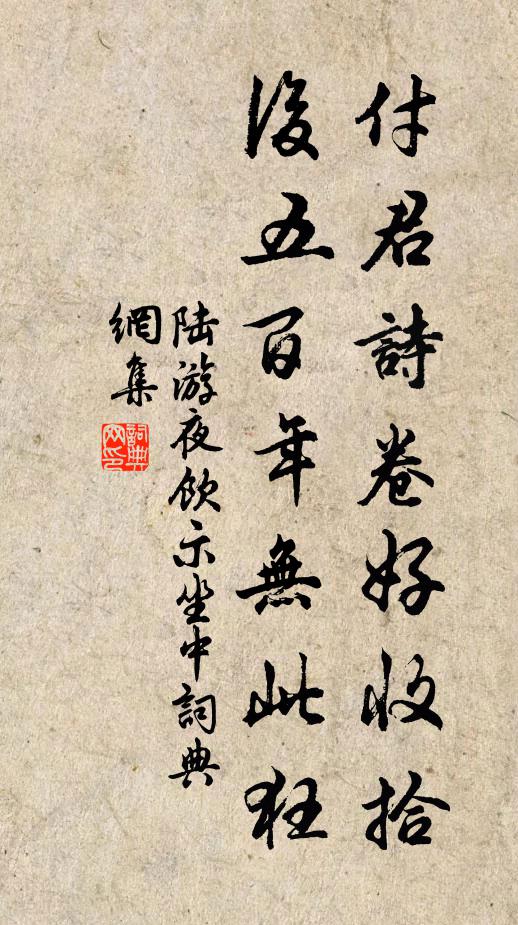 付君詩卷好收拾
後五百年無此狂
陸游夜飲示坐中詞典
網集
詞典
网印